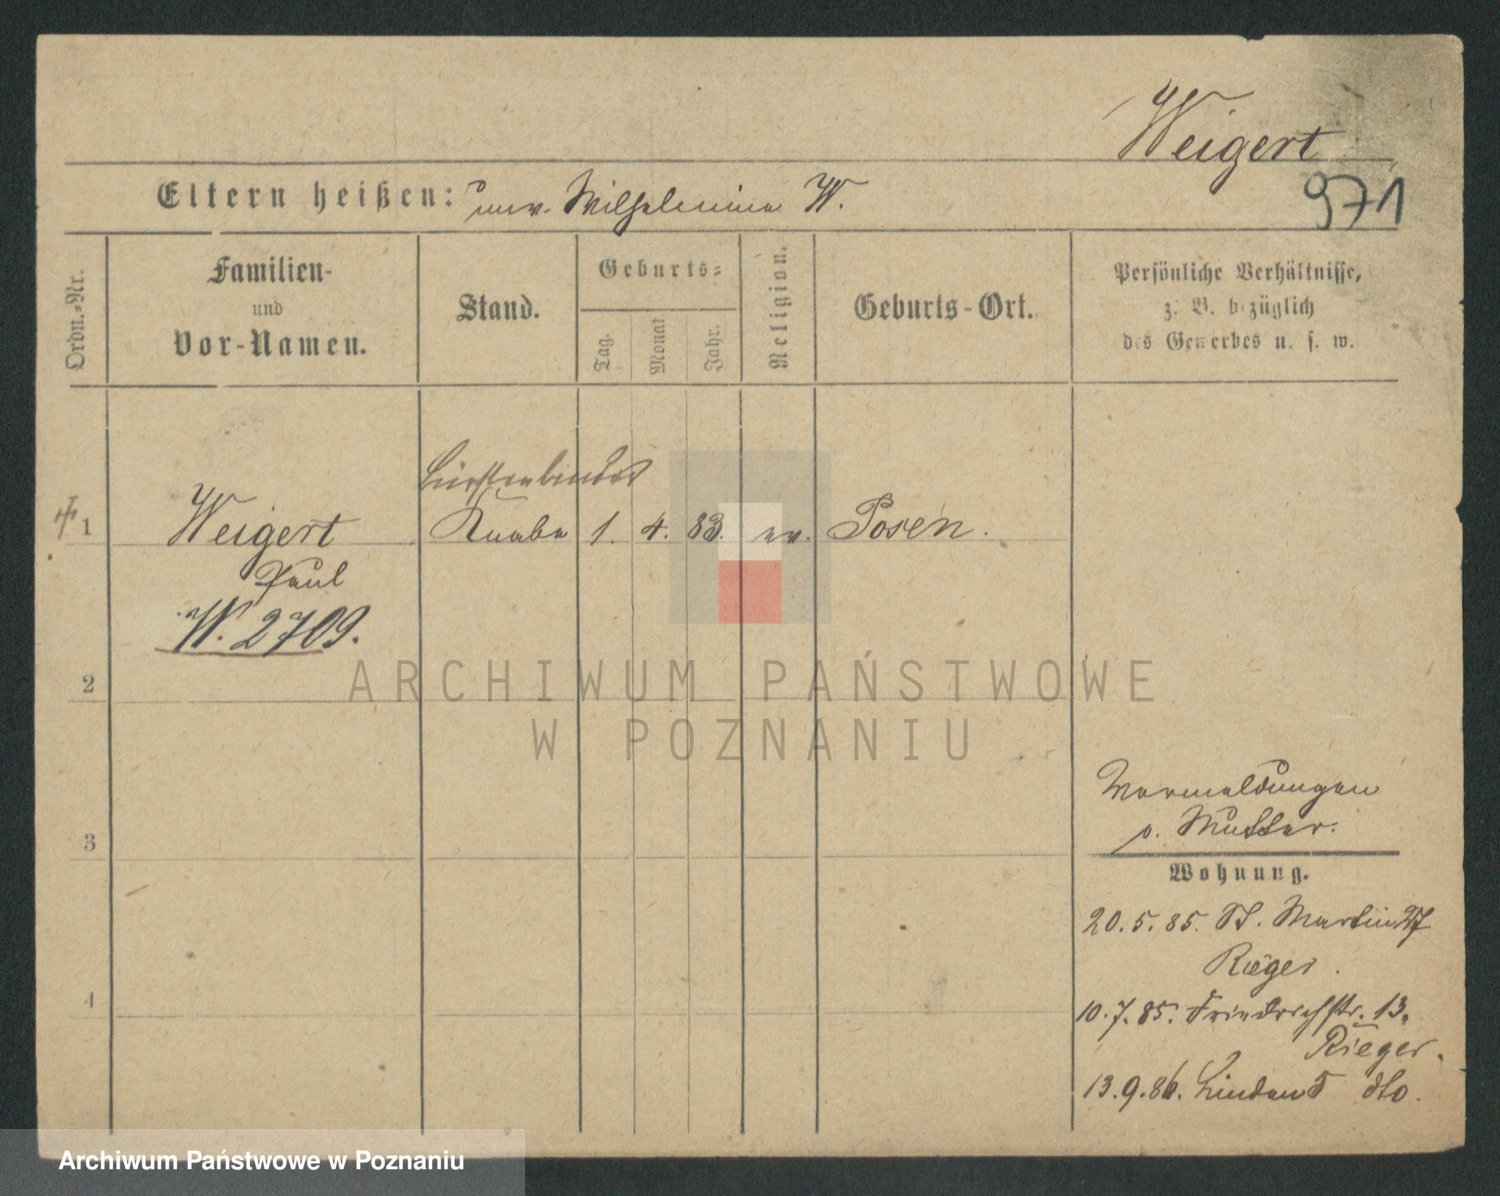 Weigert
971
Eltern heißen: unv. Wilhelmine W.
Ordn.-Nr.
Familien-
und
Vor-Namen.
Stand.
Geburts-
Tag.
Monat
Jahr.
Religion.
Geburts-Ort.
Persönliche Verhältnisse,
z. B. bezüglich
des Gewerbes u. s. w.
Bürstenbinder
1 Weigert Knabe 1. 4. 83. ev. Posen.
Paul
W. 2709.
2
ARCHIWUM PAŃSTWOWE
W POZNANIU
Vormeldungen
s. Mutter.
3
Wohnung.
20. 5. 85. St. Martin 27
Rieger.
4
10. 7. 85. Friedrichstr. 13.
Rieger.
13. 9. 86. Linden 5 dto.
Archiwum Państwowe w Poznaniu